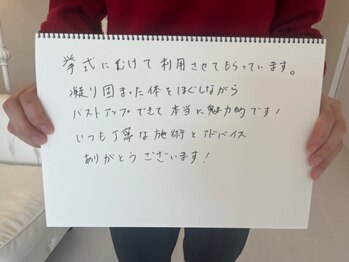 挙式にむけて利用させてもらっています。
凝り固まった体をほぐしながら
バストアップできて本当に魅力的です！
いつも丁寧な施術とアドバイス
ありがとうございます！